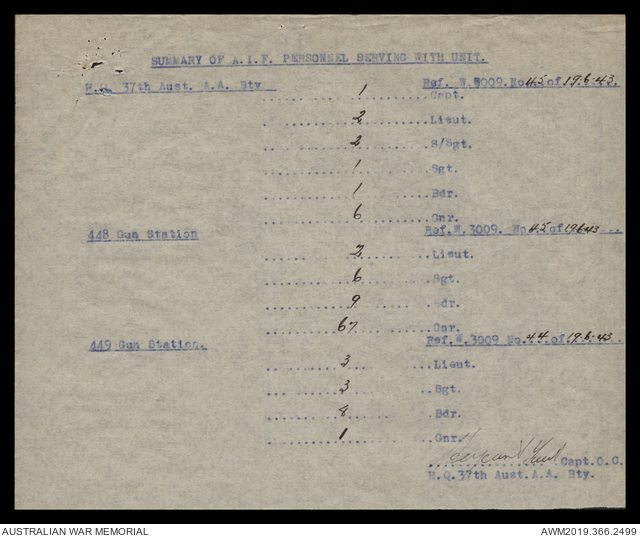 SUMMARY OF A.I.F. PERSONNEL SERVING WITH UNIT.
H.Q. 37th Aust. A.A. Bty Ref. W.3009.No 45 of 19.6.43.
1 Capt.
2 Lieut.
2 S/Sgt.
1 Sgt.
1 Bdr.
6 Gnr.
448 Gun Station Ref.W.3009. No 45 of 19.6.43
2 Lieut.
6 Sgt.
9 Bdr.
67 Gnr.
449 Gun Station. Ref.W.3009 No.44.of 19.6.43
3 Lieut.
3 Sgt.
8 Bdr.
1 Gnr.
Capt.O.C.
H.Q.37th Aust.A.A. Bty.
AUSTRALIAN WAR MEMORIAL AWM2019.366.2499